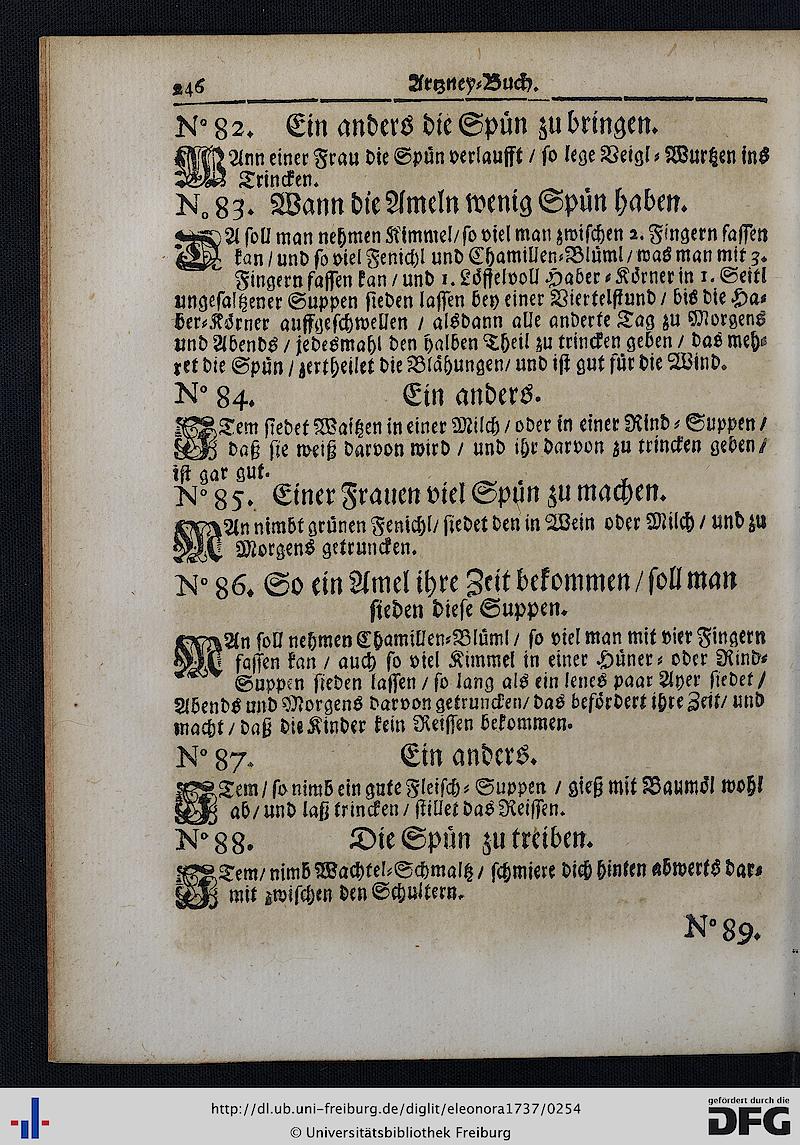 246 Artzney⸗Buch.
N° 82. Ein anders die Spün zu bringen.
WAnn einer Frau die Spün verlaufft / so lege Veigl⸗Wurtzen ins
Trincken.
No 83. Wann die Ameln wenig Spün haben.
DA soll man nehmen Kimmel/ so viel man zwischen 2. Fingern fassen
kan / und so viel Fenichl und Chamillen⸗Blüml / was man mit 3.
Fingern fassen kan / und 1. Löffelvoll Haber⸗Körner in 1. Seitl
ungesaltzener Suppen sieden lassen bey einer Viertelstund / bis die Ha⸗
ber⸗Körner auffgeschwellen / alsdann alle anderte Tag zu Morgens
und Abends / jedesmahl den halben Theil zu trincken geben / das meh⸗
ret die Spün / zertheilet die Blähungen/ und ist gut für die Wind.
N° 84. Ein anders.
ITem siedet Waitzen in einer Milch / oder in einer Rind⸗Suppen /
daß sie weiß darvon wird / und ihr darvon zu trincken geben /
ist gar gut.
N° 85. Einer Frauen viel Spün zu machen.
MAn nimbt grünen Fenichl/ siedet den in Wein oder Milch / und zu
Morgens getruncken.
N° 86. So ein Amel ihre Zeit bekommen / soll man
sieden diese Suppen.
MAn soll nehmen Chamillen⸗Blüml / so viel man mit vier Fingern
fassen kan / auch so viel Kimmel in einer Hüner⸗ oder Rind⸗
Suppen sieden lassen / so lang als ein lenes paar Ayer siedet /
Abends und Morgens darvon getruncken/ das befördert ihre Zeit/ und
macht / daß die Kinder kein Reissen bekommen.
N° 87. Ein anders.
ITem / so nimb ein gute Fleisch⸗Suppen / gieß mit Baumöl wohl
ab / und laß trincken / stillet das Reissen.
N° 88. Die Spün zu treiben.
ITem/ nimb Wachtel⸗Schmaltz / schmiere dich hinten abwerts dar⸗
mit zwischen den Schultern.
N° 89.
http://dl.ub.uni-freiburg.de/diglit/eleonora1737/0254
© Universitätsbibliothek Freiburg
gefördert durch die
DFG